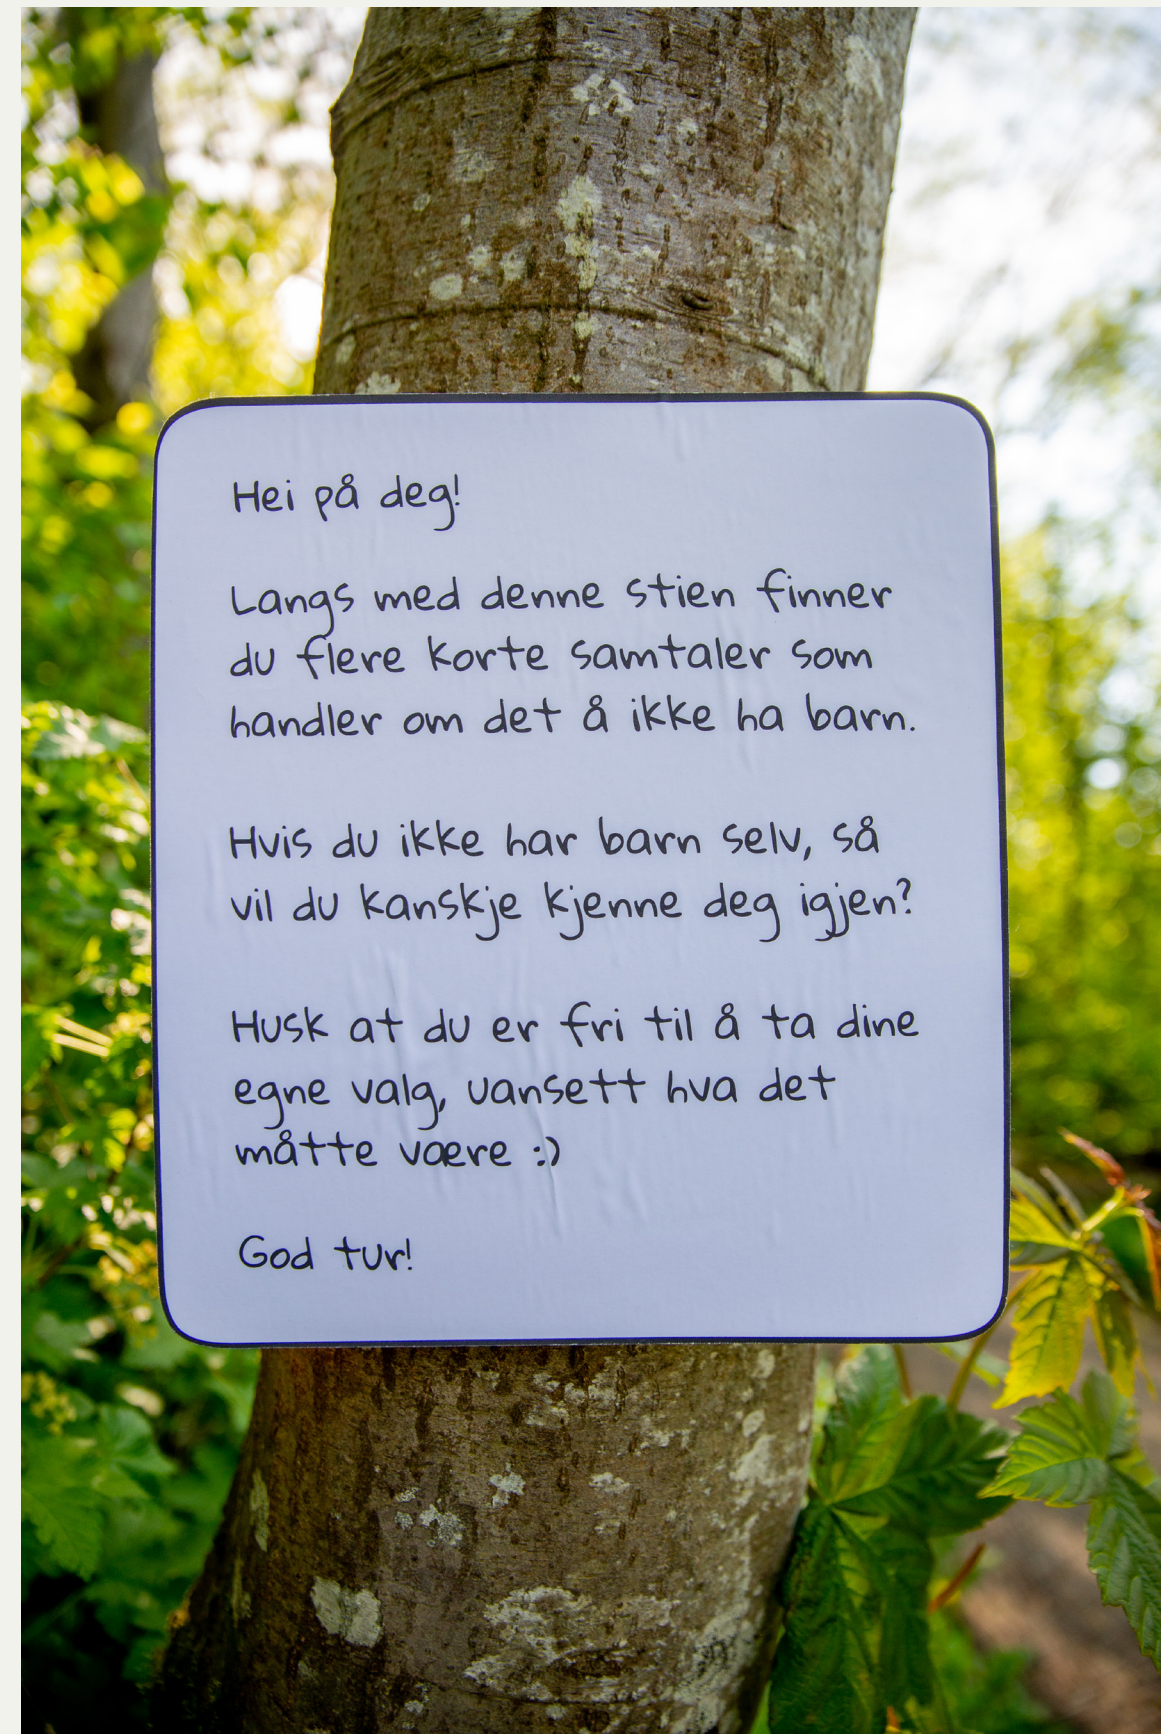 Hei på deg!
Langs med denne stien finner
du flere korte samtaler som
handler om det å ikke ha barn.
Hvis du ikke har barn selv, så
vil du kanskje kjenne deg igjen?
Husk at du er fri til å ta dine
egne valg, uansett hva det
måtte være :)
God tur!